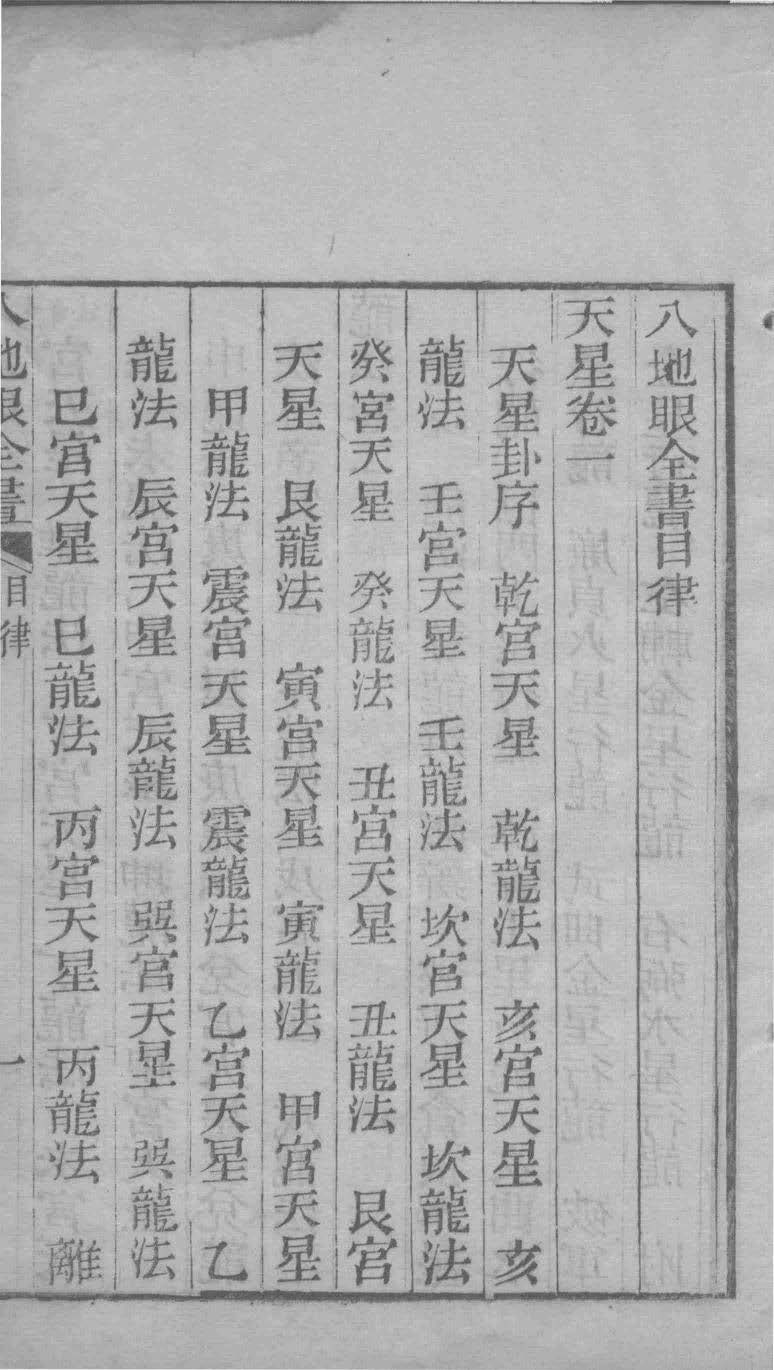 入地眼全書目律
天星卷一
天星卦序　乾宮天星　乾龍法　亥宮天星　亥
龍法　壬宮天星　壬龍法　坎宮天星　坎龍法
癸宮天星　癸龍法　丑宮天星　丑龍法　艮宮
天星　艮龍法　寅宮天星　寅龍法　甲宮天星
甲龍法　震宮天星　震龍法　乙宮天星　乙
龍法　辰宮天星　辰龍法　巽宮天星　巽龍法
巳宮天星　巳龍法　丙宮天星　丙龍法　離
入地眼全書　目律　一